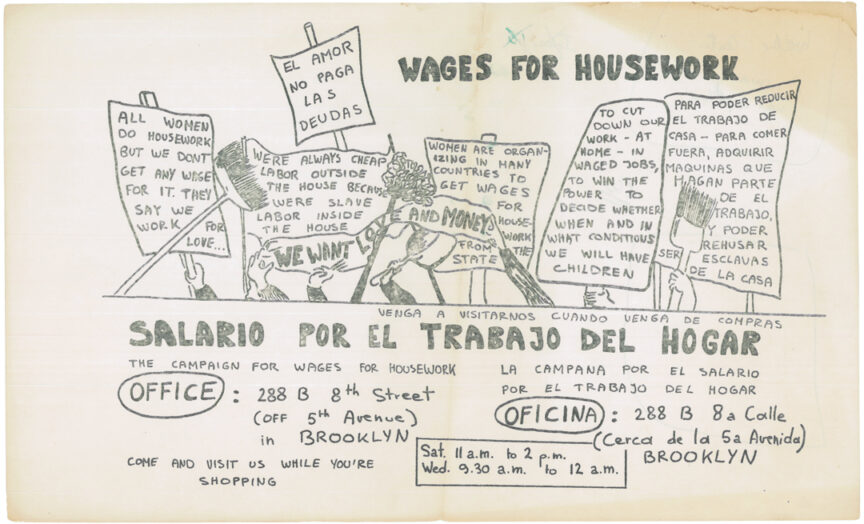 WAGES FOR HOUSEWORK
EL AMOR
NO PAGA
LAS
DEUDAS
ALL WOMEN
DO HOUSEWORK
BUT WE DONT
GET ANY WAGE
FOR IT. THEY
SAY WE
WORK FOR
LOVE...
WERE ALWAYS CHEAP
LABOR OUTSIDE
THE HOUSE BECAUSE
WERE SLAVE
LABOR INSIDE
THE HOUSE
WE WANT LOVE AND MONEY
WOMEN ARE ORGAN-
IZING IN MANY
COUNTRIES TO
GET WAGES
FOR
HOUSE-
WORK
FROM THE
STATE
TO CUT
DOWN OUR
WORK - AT
HOME - IN
WAGED JOBS,
TO WIN THE
POWER TO
DECIDE WHETHER
WHEN AND IN
WHAT CONDITIONS
WE WILL HAVE
CHILDREN
PARA PODER REDUCIR
EL TRABAJO DE
CASA - PARA COMER
FUERA, ADQUIRIR
MAQUINAS QUE
HAGAN PARTE
DE EL
TRABAJO,
Y PODER
REHUSAR
SER ESCLAVAS
DE LA CASA
VENGA A VISITARNOS CUANDO VENGA DE COMPRAS
SALARIO POR EL TRABAJO DEL HOGAR
THE CAMPAIGN FOR WAGES FOR HOUSEWORK
OFFICE: 288 B 8th Street
(OFF 5th Avenue)
in BROOKLYN
COME AND VISIT US WHILE YOU'RE
SHOPPING
LA CAMPANA POR EL SALARIO
POR EL TRABAJO DEL HOGAR
OFICINA: 288 B 8a Calle
(Cerca de la 5a Avenida)
BROOKLYN
Sat. 11 a.m. to 2 p.m.
Wed. 9.30 a.m. to 12 a.m.